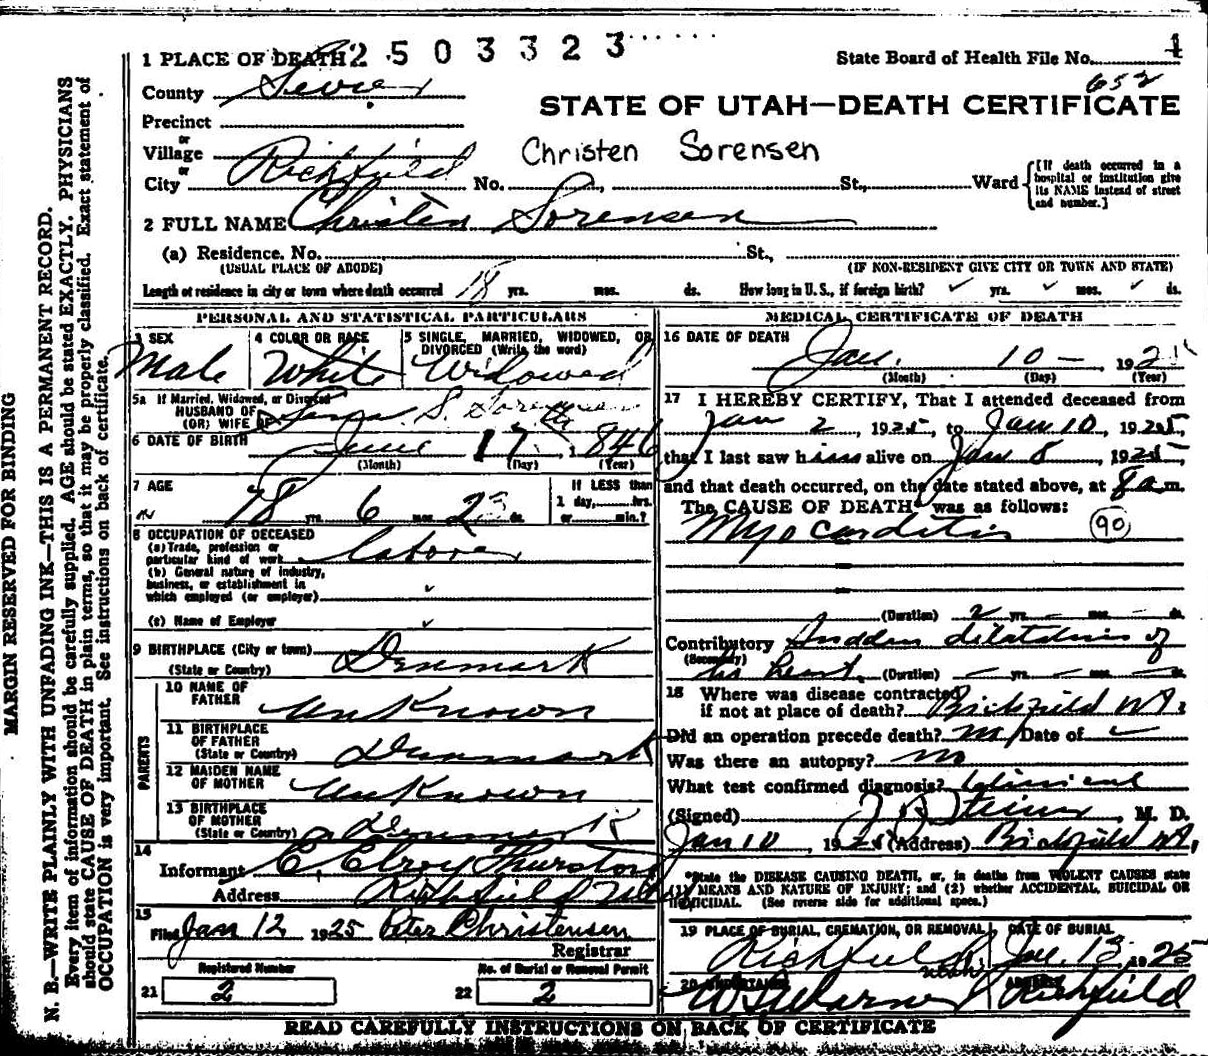 2 5 0 3 3 2 3
1 PLACE OF DEATH
State Board of Health File No. 1
652
County Sevier
STATE OF UTAH—DEATH CERTIFICATE
Precinct
or
Village
Christen Sorensen
or
City Richfield No. St., Ward
[If death occurred in a hospital or institution give its NAME instead of street and number.]
2 FULL NAME Christen Sorensen
(a) Residence. No. St.,
(USUAL PLACE OF ABODE) (IF NON-RESIDENT GIVE CITY OR TOWN AND STATE)
Length of residence in city or town where death occurred 18 yrs. mos. ds. How long in U. S., if foreign birth? ✓ yrs. ✓ mos. ✓ ds.
PERSONAL AND STATISTICAL PARTICULARS
3 SEX
Male
4 COLOR OR RACE
White
5 SINGLE, MARRIED, WIDOWED, OR
DIVORCED (Write the word)
Widowed
5a If Married, Widowed, or Divorced
HUSBAND OF
(OR) WIFE OF S. Sorensen
6 DATE OF BIRTH June 17th, 1846
(Month) (Day) (Year)
7 AGE
78 yrs. 6 mos. 23 ds.
If LESS than
1 day, hrs.
or min.?
8 OCCUPATION OF DECEASED
(a) Trade, profession or
particular kind of work laborer
(b) General nature of industry,
business, or establishment in
which employed (or employer) ✓
(c) Name of Employer ✓
9 BIRTHPLACE (City or town)
(State or Country) Denmark
PARENTS
10 NAME OF
FATHER Unknown
11 BIRTHPLACE
OF FATHER
(State or Country) Denmark
12 MAIDEN NAME
OF MOTHER Unknown
13 BIRTHPLACE
OF MOTHER
(State or Country) Denmark
14
Informant C. Elroy Thurston
Address Richfield Utah
15
Filed Jan 12 1925 Peter Christensen
Registrar
Registered Number
21 2
No. of Burial or Removal Permit
22 2
MEDICAL CERTIFICATE OF DEATH
16 DATE OF DEATH
Jan. 10 — 1925
(Month) (Day) (Year)
17 I HEREBY CERTIFY, That I attended deceased from
Jan 2, 1925, to Jan 10, 1925,
that I last saw him alive on Jan 8, 1925,
and that death occurred, on the date stated above, at 8 a m.
The CAUSE OF DEATH was as follows:
Myocarditis 90
(Duration) 2 yrs. — mos. — ds.
Contributory Sudden dilatation of
(Secondary) his heart. (Duration) — yrs. — mos. — ds.
18 Where was disease contracted
if not at place of death? Richfield Ut.
Did an operation precede death? no Date of
Was there an autopsy? no
What test confirmed diagnosis? Clinical
(Signed) M. D.
Jan 10, 1925 (Address) Richfield Ut.
*State the DISEASE CAUSING DEATH, or, in deaths from VIOLENT CAUSES state
(1) MEANS AND NATURE OF INJURY; and (2) whether ACCIDENTAL, SUICIDAL OR
HOMICIDAL. (See reverse side for additional space.)
19 PLACE OF BURIAL, CREMATION, OR REMOVAL
Richfield Utah
DATE OF BURIAL
Jan. 13 1925
20 UNDERTAKER
ADDRESS
Richfield
READ CAREFULLY INSTRUCTIONS ON BACK OF CERTIFICATE
MARGIN RESERVED FOR BINDING
N. B.—WRITE PLAINLY WITH UNFADING INK—THIS IS A PERMANENT RECORD.
Every item of information should be carefully supplied. AGE should be stated EXACTLY. PHYSICIANS
should state CAUSE OF DEATH in plain terms, so that it may be properly classified. Exact statement of
OCCUPATION is very important. See instructions on back of certificate.